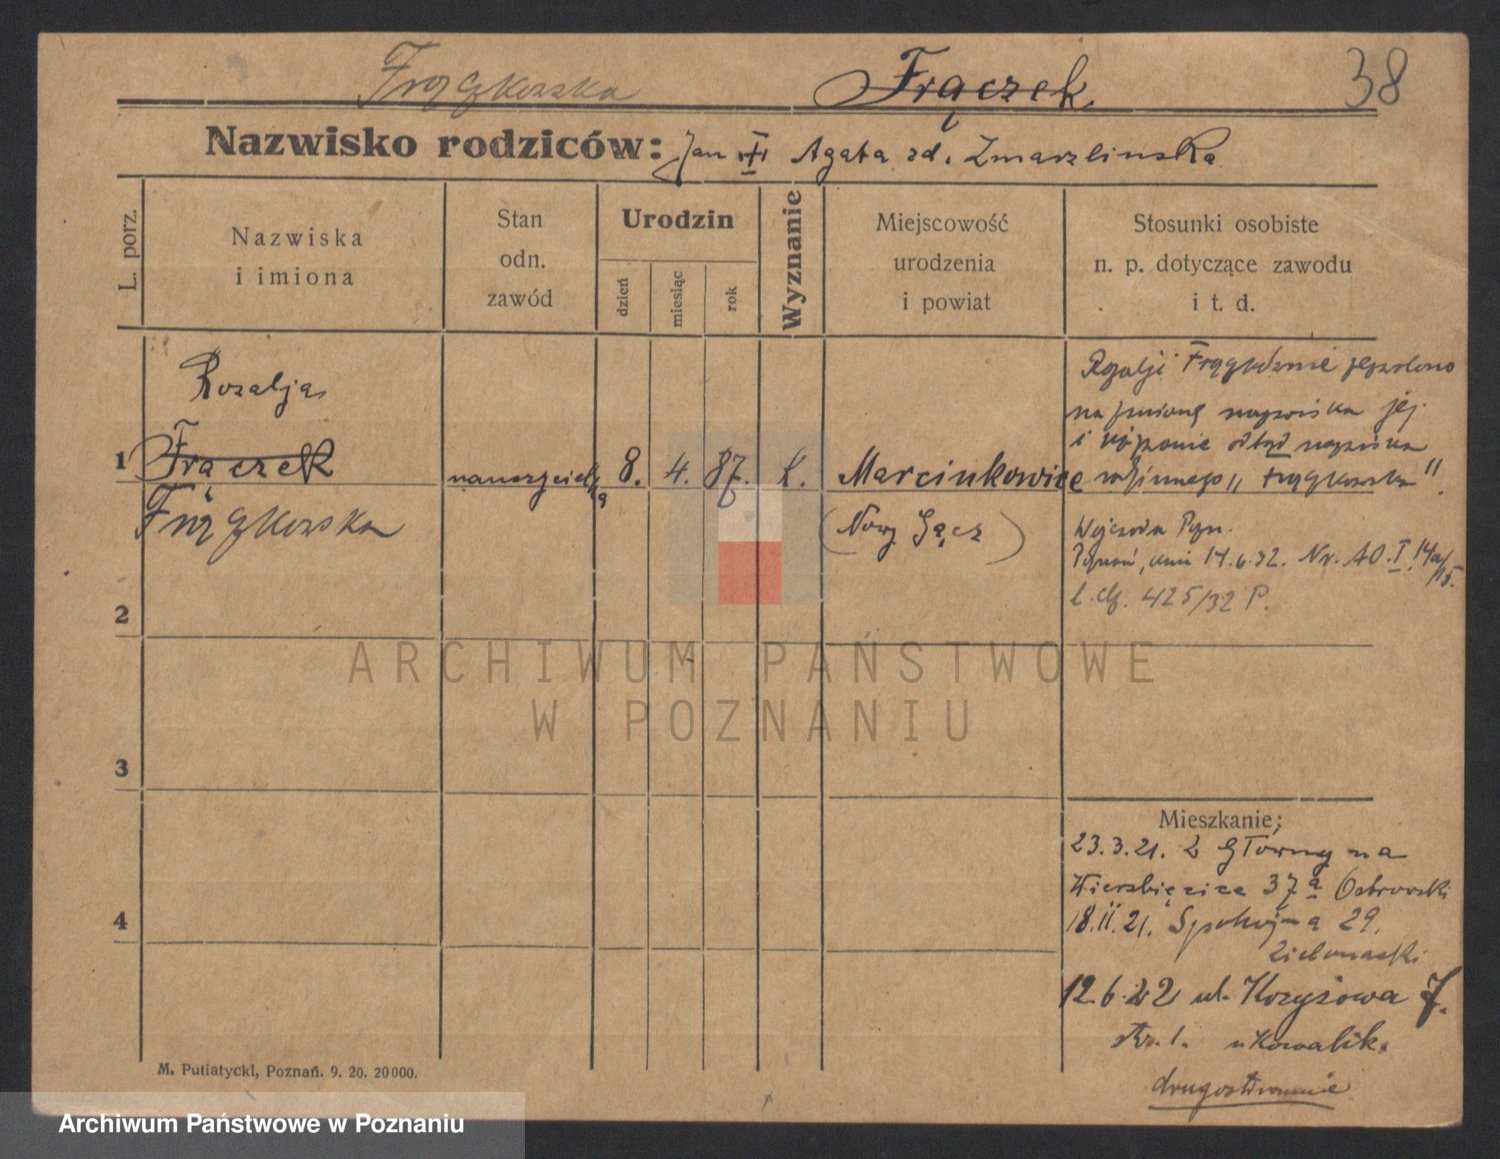 Frączkowska Frączek 38
Nazwisko rodziców: Jan Agata zd. Zmarzlinska
L. porz.
Nazwiska
i imiona
Stan
odn.
zawód
Urodzin
dzień
miesiąc
rok
Wyznanie
Miejscowość
urodzenia
i powiat
Stosunki osobiste
n. p. dotyczące zawodu
i t. d.
Rozalja
1 Frączek nauczycielka 8. 4. 87. k. Marcinkowice
Frączkowska (Nowy Sącz)
na zmianę nazwiska jej
nazwiska
"Frączkowska".
Pozn.
Poznań, dnia 14.6.32. Nr. 40. I. 14a/15.
l. dz. 425/32 P.
2
3
4
Mieszkanie;
23.3.21. z Główny na
Wierzbięcice 37a Ostrowski
18.II.21. Spokojna 29.
Zielonacki
12.6.22 ul. Krzyżowa 7.
str. 1. u Kowalik.
drugostronnie
M. Putiatycki, Poznań. 9. 20. 20000.
ARCHIWUM PAŃSTWOWE
W POZNANIU
Archiwum Państwowe w Poznaniu